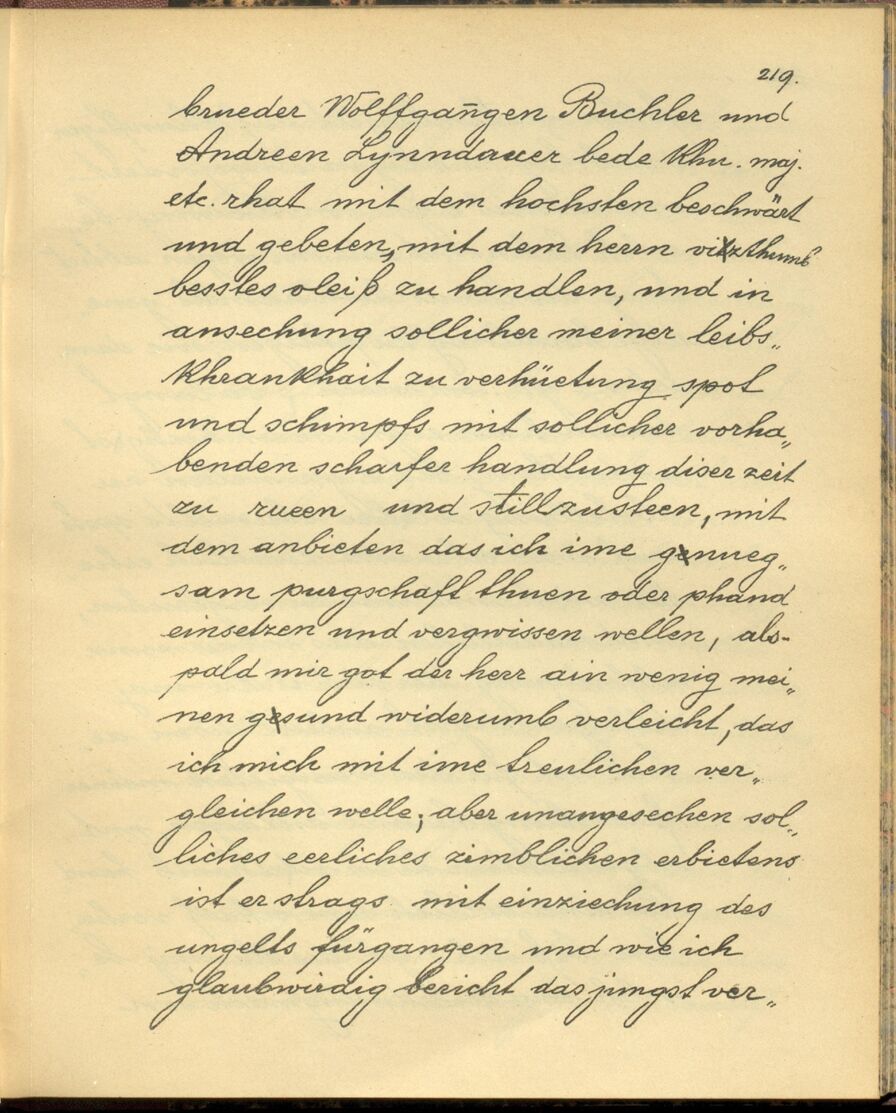 219.
brueder Wolffgangen Buchler und
Andreen Lynndauer bede Khu. maj.
etc. rhat mit dem hochsten beschwärt
und gebeten, mit dem herrn vitzthumb
besstes vleiß zu handlen, und in
ansechung sollicher meiner leibs„
Khrankhait zu verhüetung spot
und schimpfs mit sollicher vorha„
benden scharfer handlung diser zeit
zu rueen und stillzusteen, mit
dem anbieten das ich ime genueg„
sam purgschaft thuen oder phand
einsetzen und vergwissen wellen, als-
pald mir got der herr ain wenig mei„
nen gesund widerumb verleicht, das
ich mich mit ime treulichen ver„
gleichen welle; aber unangesechen sol„
liches eerliches zimblichen erbietens
ist er strags mit einziechung des
ungelts fürgangen und wie ich
glaubwirdig bericht das jungst ver„